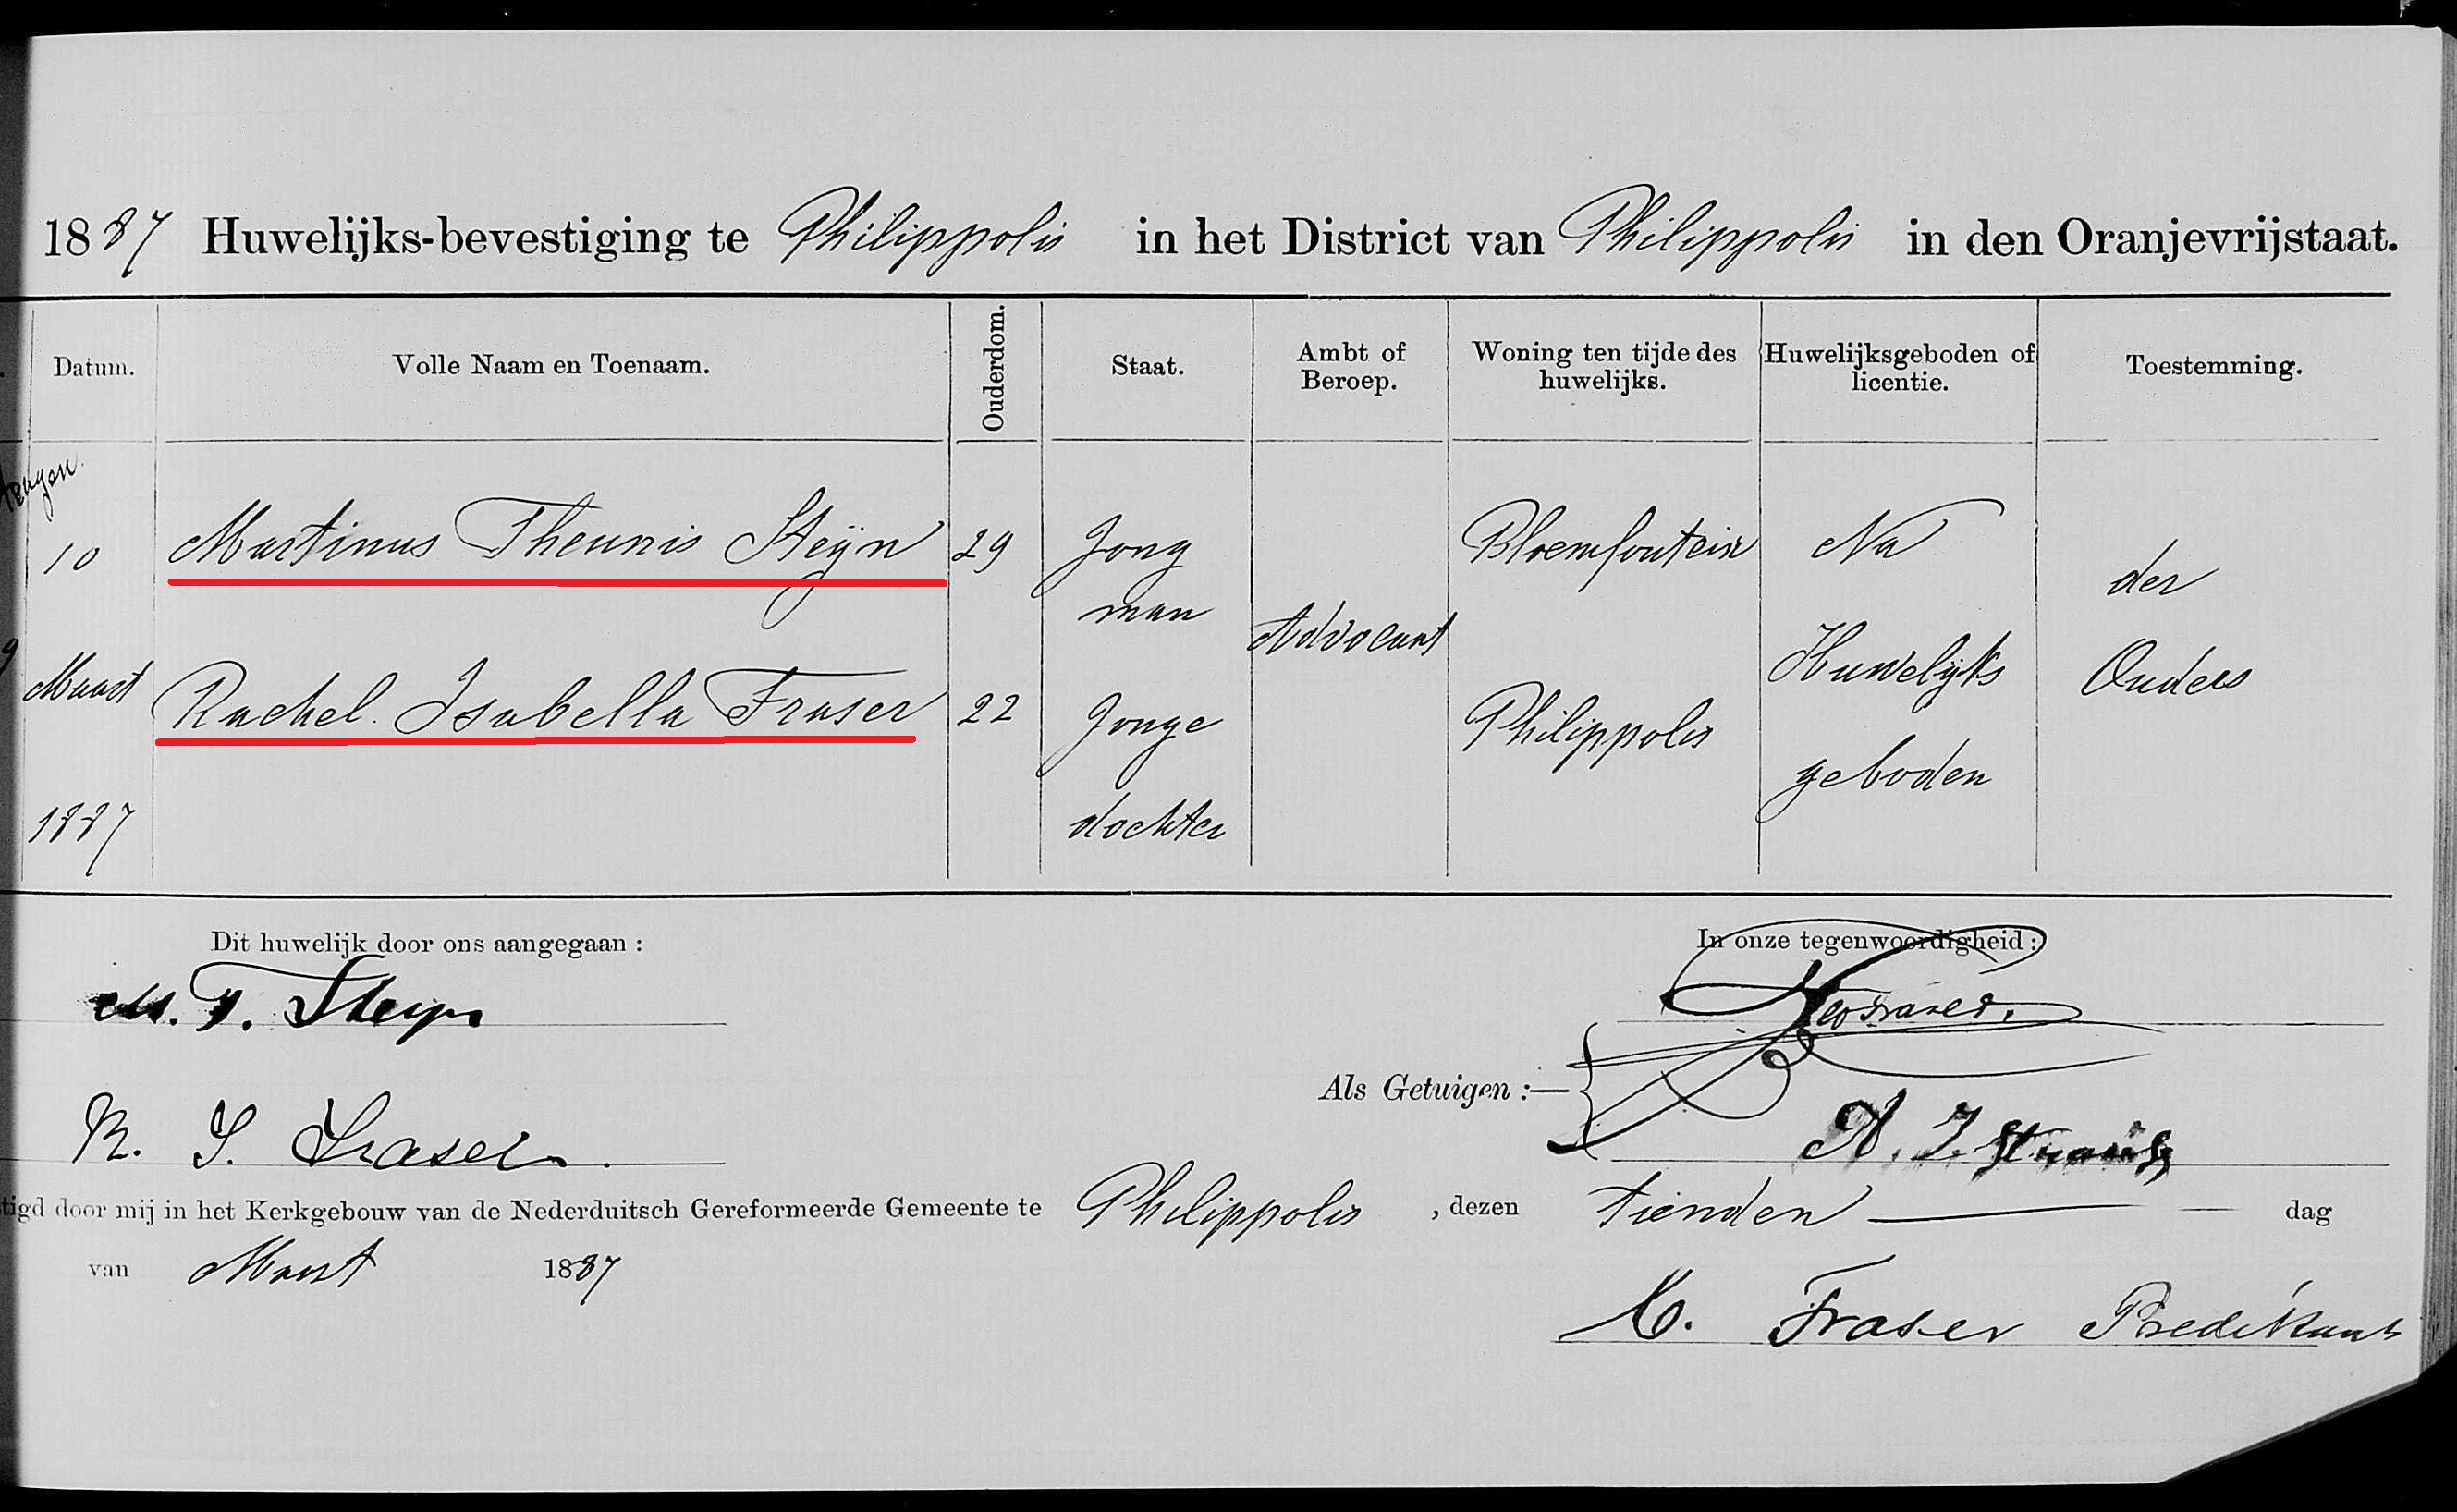 1887 Huwelijks-bevestiging te Philippolis in het District van Philippolis in den Oranjevrijstaat.
Datum. Volle Naam en Toenaam. Ouderdom. Staat. Ambt of Beroep. Woning ten tijde des huwelijks. Huwelijksgeboden of licentie. Toestemming.
10 Maart 1887
Martinus Theunis Steijn 29 Jong man Advocaat Bloemfontein
Rachel Isabella Fraser 22 Jonge dochter Philippolis
Na Huwelijks geboden
der Ouders
Dit huwelijk door ons aangegaan :
In onze tegenwoordigheid :
M. T. Steyn
R. I. Fraser.
Als Getuigen :—
tigd door mij in het Kerkgebouw van de Nederduitsch Gereformeerde Gemeente te Philippolis , dezen tienden dag
van Maart 1887
C. Fraser Predikant